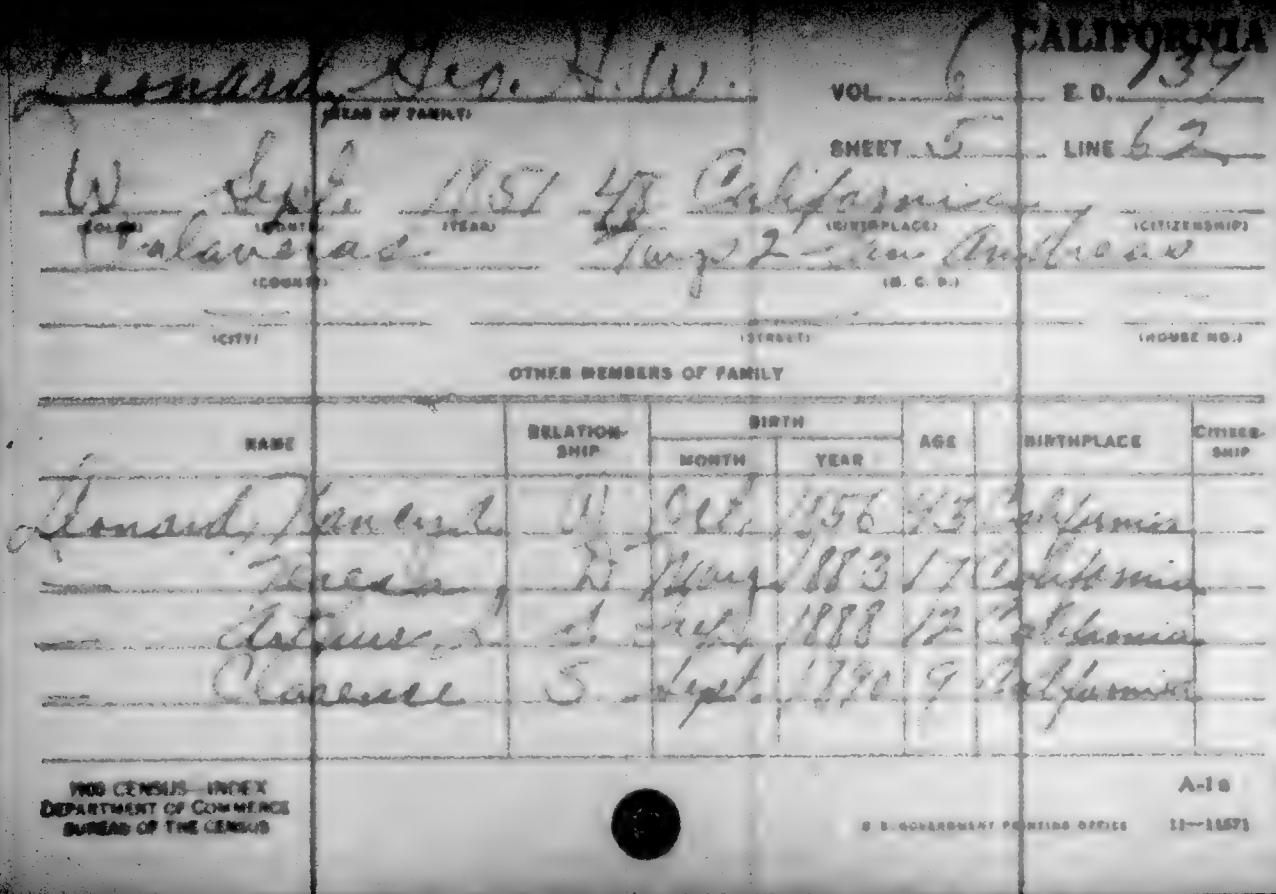 CALIFORNIA
Leonard, Geo. H. W. VOL. 6 E. D.
(HEAD OF FAMILY)
SHEET 5 LINE 62
W Sept 1851 48 California
(COLOR) (MONTH) (YEAR) (AGE) (BIRTHPLACE) (CITIZENSHIP)
Calaveras Twp 2 - San Andreas
(COUNTY) (M. C. D.)
(CITY) (STREET) (HOUSE NO.)
OTHER MEMBERS OF FAMILY
NAME RELATION-SHIP BIRTH MONTH YEAR AGE BIRTHPLACE CITIZEN-SHIP
Leonard, W Oct. 1856 43 California
Teresa D 1883 17 California
Arthur S 1888 12 California
Clarence S Sept. 1890 9 California
1900 CENSUS—INDEX
DEPARTMENT OF COMMERCE
BUREAU OF THE CENSUS
A-1a
U. S. GOVERNMENT PRINTING OFFICE 11—11571